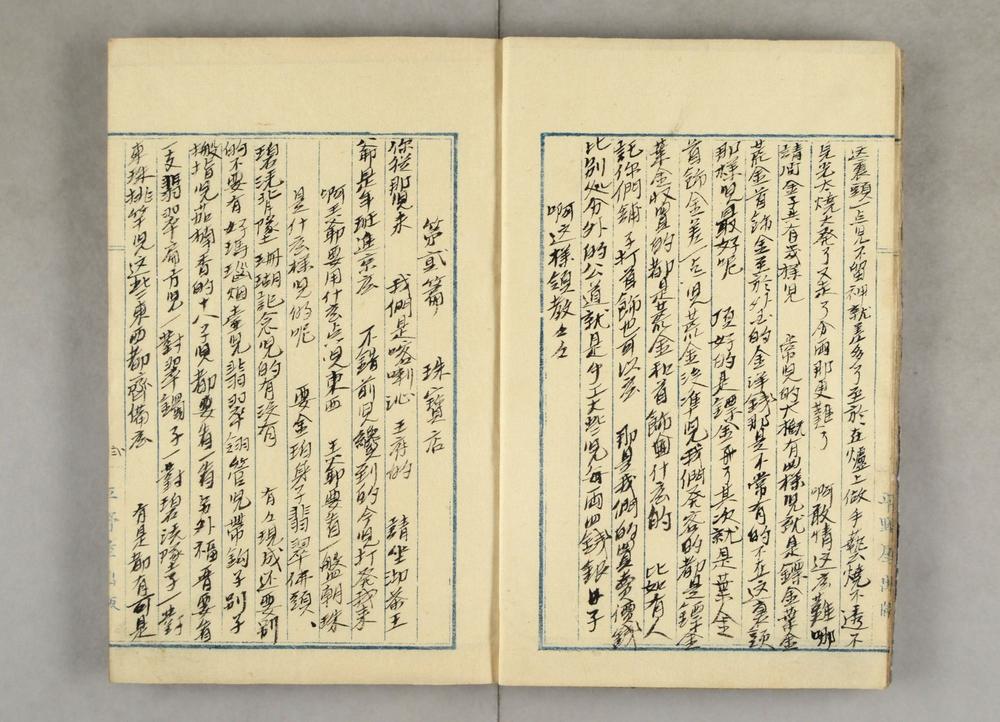 這裏頭一点児不留神就差多了至於在爐上做手藝燒不透不
見光太燒大發了又走了分兩那更難了　啊敢情這広難哪
請問金子共有幾樣児　常見的大概有四樣児就是鏢金葉金
荒金首飾金至於外国的金洋錢那是不常有的不在這裏頭
那樣児最好呢　頂好的是鏢金再其次就是葉金
首飾金差一点児荒金没準児我們發客的都是鏢金
葉金收買的都是荒金和首飾圈什広的　比如有人
託你們鋪子打首飾也可以広　那是我們的買賣價錢
比别処分外的公道就是手工大些児每兩四錢銀子
啊這樣領教々々
第貳篇　珠寶店
你從那児来　我們是喀喇沁王府的　請坐沏茶王
爺是年班進京広　不錯前児纔到的今児打發我来
啊王爺要用什広点児東西　王爺要看一盤朝珠
是什広樣児的呢　要金珀身子翡翠佛頭、
碧洗背墜珊瑚記念児的有没有　有々現成还要别
的不要有好瑪瑙烟壺児翡翠翎管児帶鈎子别子
搬指児茄楠香的十八子児都要看一看另外福晋要看
一支翡翠扁方児一對翠鐲子一對碧洗墜子一對
東珠挑竿児這些東西都齊備広　有是都有可是